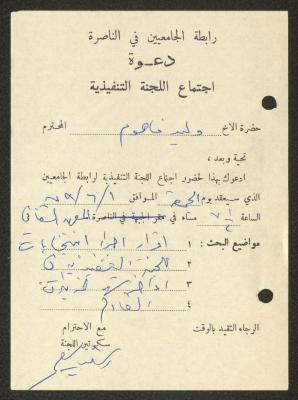 رابطة الجامعيين في الناصرة
دعـوة
اجتماع اللجنة التنفيذية
حضرة الاخ وليد فاهوم المحترم
تحية وبعد ،
ادعوك بهذا لحضور اجتماع اللجنة التنفيذية لرابطة الجامعيين
الذي سيعقد يوم الجمعة الموافق ١/٦/٧٩
الساعة مساء في مقر الجبهة في الناصرة
مواضيع البحث : ١ اقرار اجراء انتخابات
٢ للجنة التنفيذية
٣
٤ القادم
الرجاء التقيد بالوقت
مع الاحترام
سكرتير اللجنة